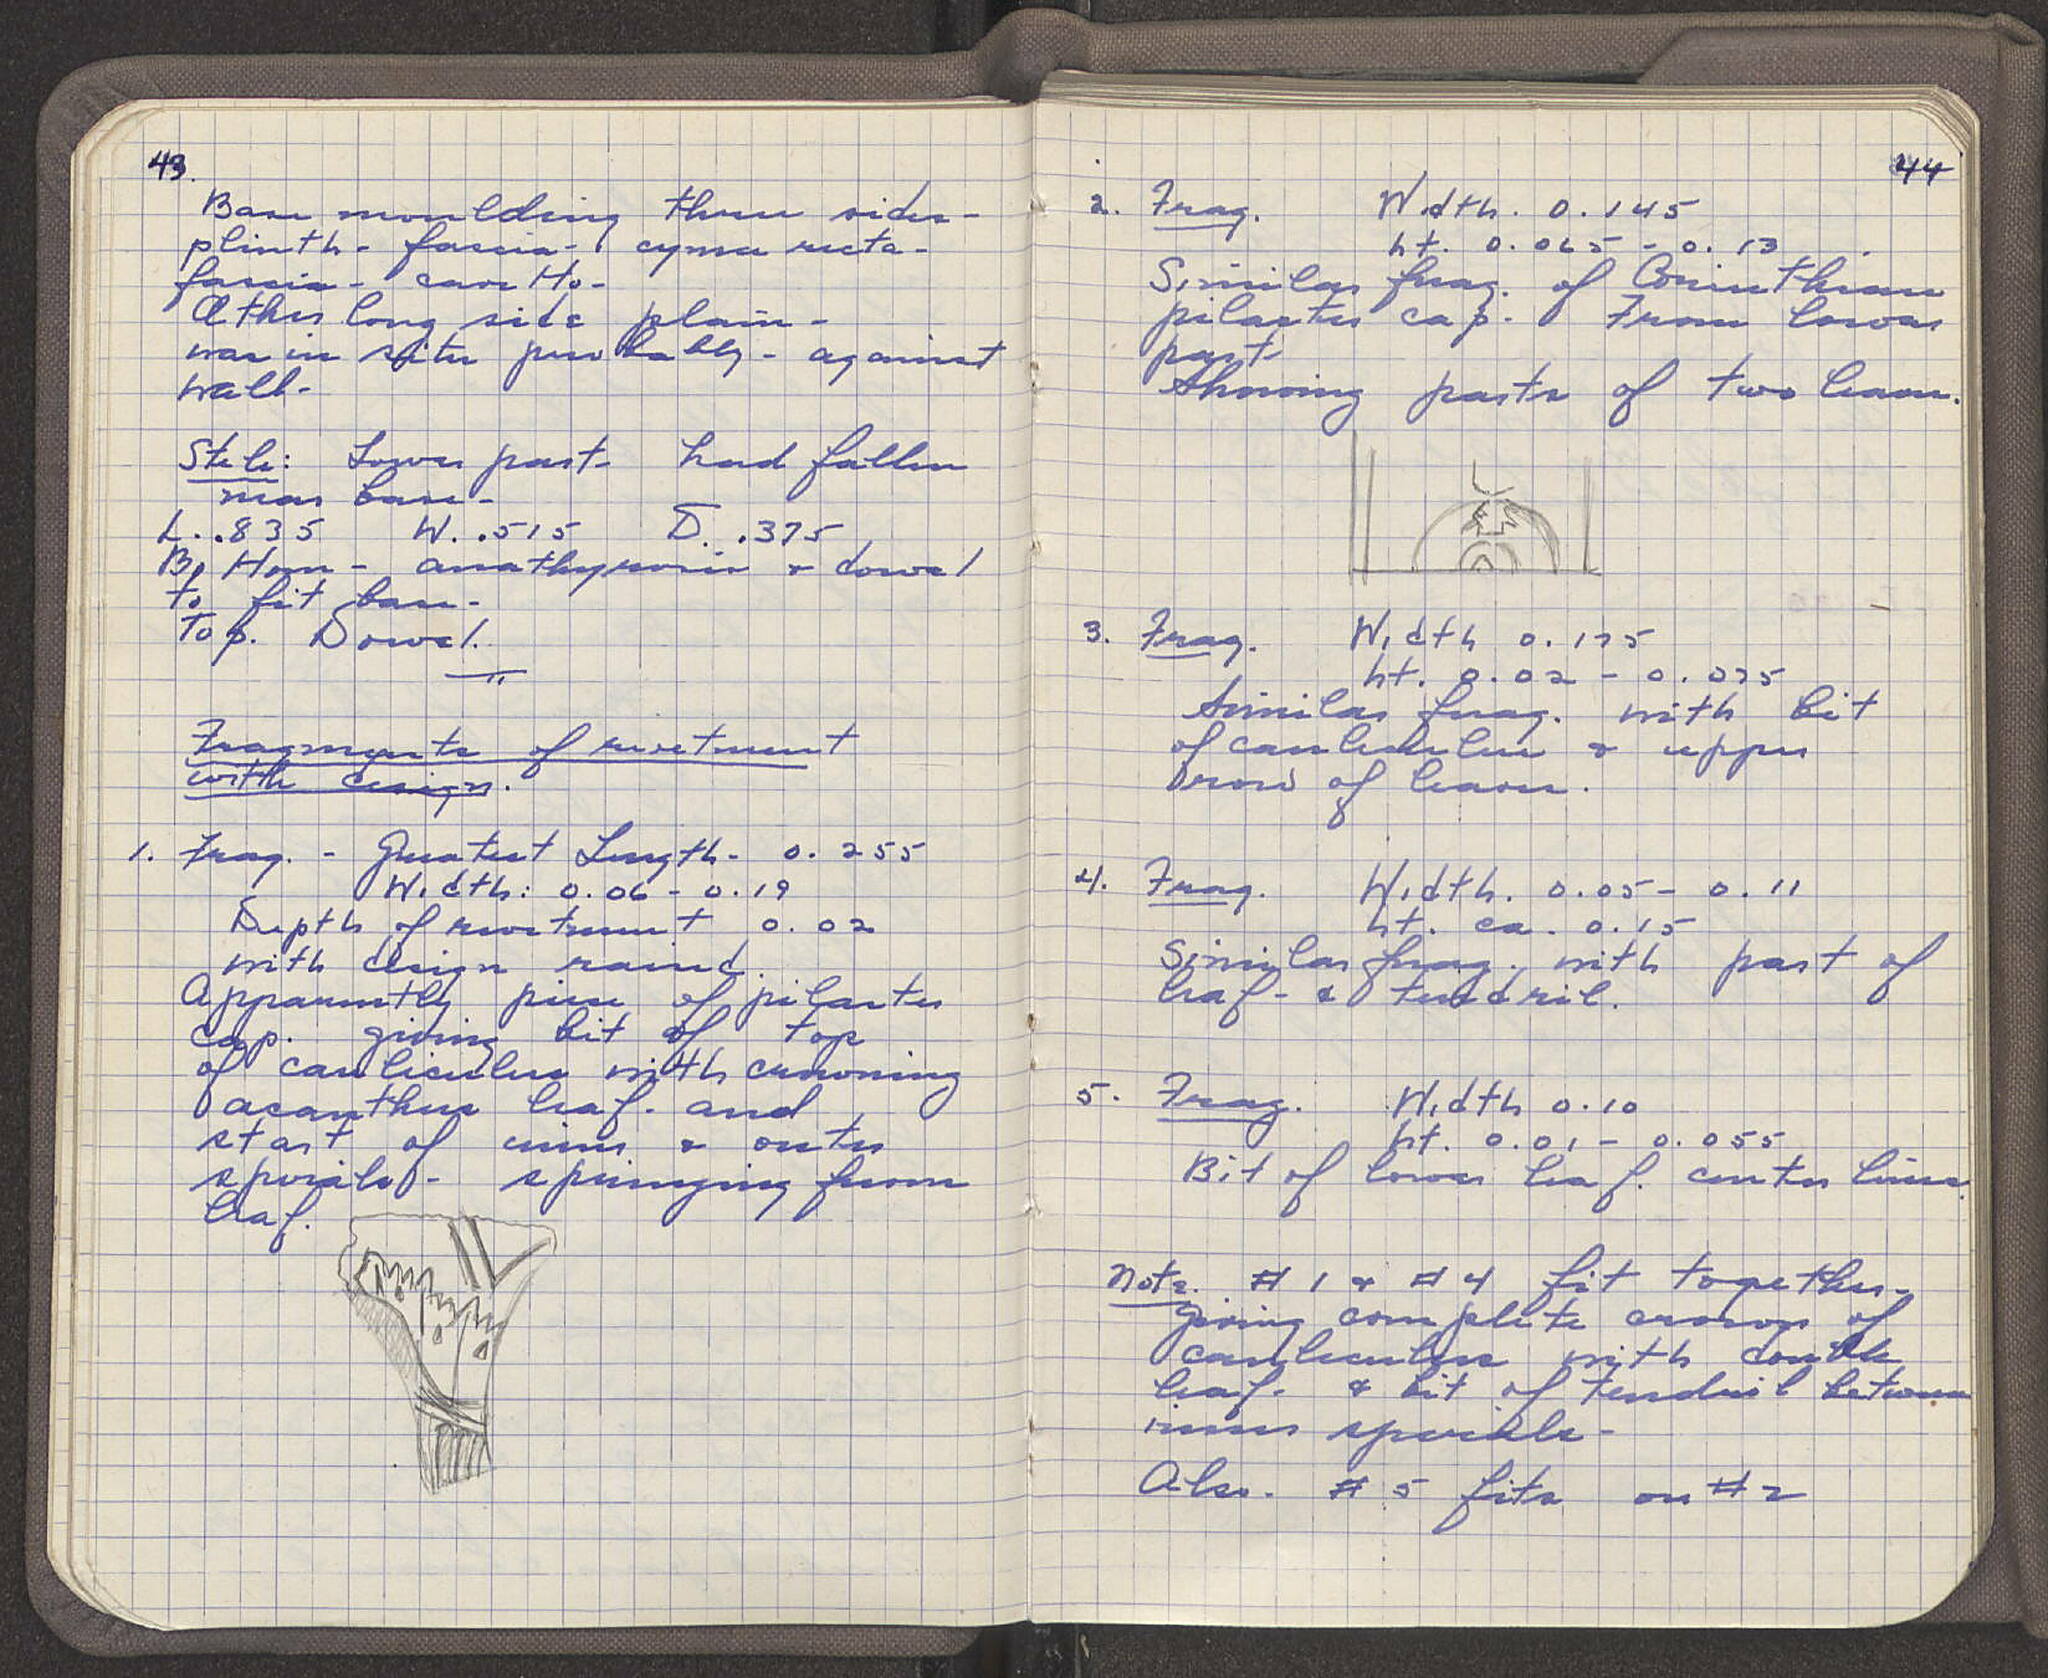 43.
Base moulding three sides -
plinth - fascia - cyma recta -
fascia - cavetto -
Other long side plain -
was in situ probably - against
wall -
Stele: Lower part - had fallen
near base -
L. .835 W. .515 D. .375
Bottom - anathyrosis & dowel
to fit base -
Top. Dowel.
Fragments of rivetment
with design.
1. Frag. - Greatest Length - 0.255
Width: 0.06 - 0.19
Depth of rivetment 0.02
with design raised.
Apparently piece of pilaster
cap. giving bit of top
of cauliculus with crowning
acanthus leaf - and
start of inner & outer
spirals - springing from
leaf.
44
2. Frag. Width. 0.145
ht. 0.065 - 0.13
Similar frag. of Corinthian
pilaster cap. From lower
part
Showing parts of two leaves.
3. Frag. Width 0.175
ht. 0.02 - 0.075
Similar frag. with bit
of cauliculus & upper
row of leaves.
4. Frag. Width. 0.05 - 0.11
ht. ca. 0.15
Similar frag. with part of
leaf - & tendril.
5. Frag. Width 0.10
ht. 0.01 - 0.055
Bit of lower leaf. center line.
Note. #1 & #4 fit together -
giving complete crown of
cauliculus with double
leaf - & bit of tendril between
inner spirals -
Also - #5 fits on #2